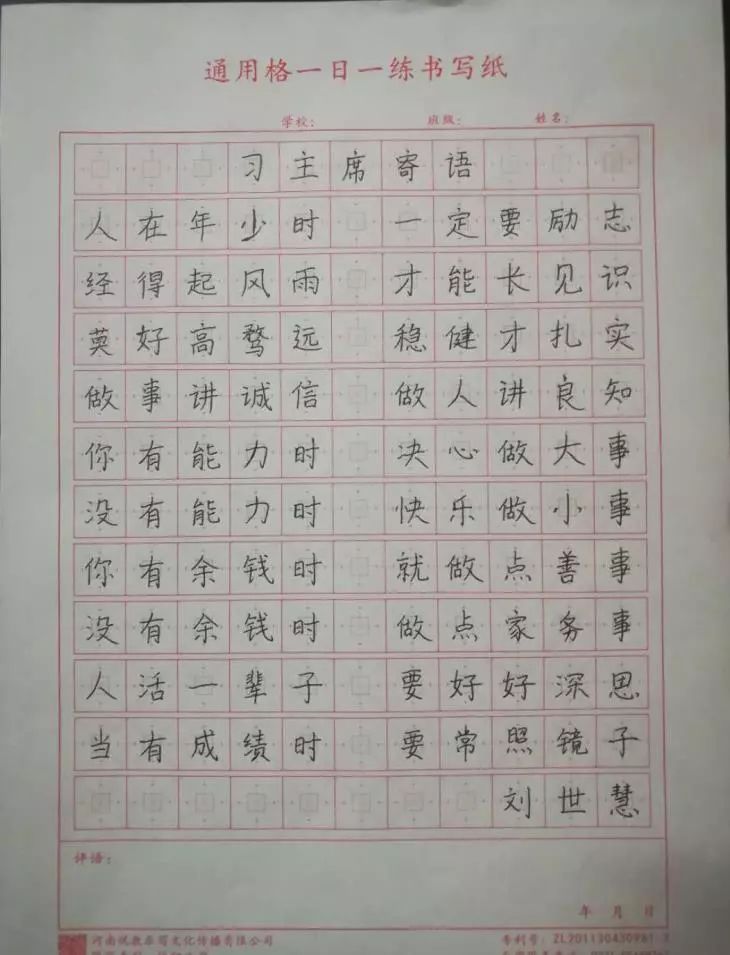 通用格一日一练书写纸
学校： 班级： 姓名：
习主席寄语
人在年少时 一定要励志
经得起风雨 才能长见识
莫好高骛远 稳健才扎实
做事讲诚信 做人讲良知
你有能力时 决心做大事
没有能力时 快乐做小事
你有余钱时 就做点善事
没有余钱时 做点家务事
人活一辈子 要好好深思
当有成绩时 要常照镜子
刘世慧
评语：
年 月 日
文化传播有限公司
专利号：